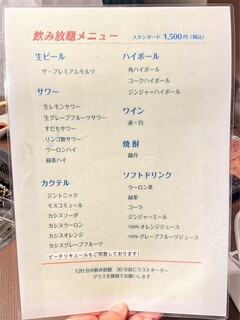 飲み放題メニュー
スタンダード 1,500円(税込)
生ビール
ザ・プレミアムモルツ
サワー
生レモンサワー
生グレープフルーツサワー
すだちサワー
リンゴ酢サワー
ウーロンハイ
緑茶ハイ
カクテル
ジントニック
モスコミュール
カシスソーダ
カシスウーロン
カシスオレンジ
カシスグレープフルーツ
ピーチリキュールもご用意しております!
ハイボール
角ハイボール
コークハイボール
ジンジャーハイボール
ワイン
赤・白
焼酎
銀月
ソフトドリンク
ウーロン茶
緑茶
コーラ
ジンジャーエール
100%オレンジジュース
100%グレープフルーツジュース
120分の飲み放題 30分前にラストオーダー
グラス交換制でお願いします